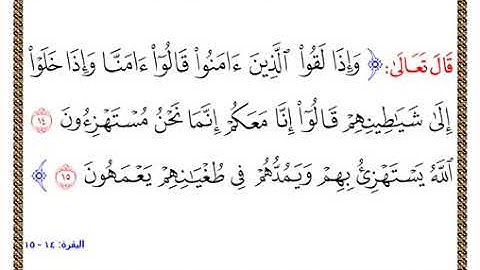 قَالَ تَعَالَىٰ: ﴿ وَإِذَا لَقُوا۟ ٱلَّذِينَ ءَامَنُوا۟ قَالُوٓا۟ ءَامَنَّا وَإِذَا خَلَوْا۟
إِلَىٰ شَيَـٰطِينِهِمْ قَالُوٓا۟ إِنَّا مَعَكُمْ إِنَّمَا نَحْنُ مُسْتَهْزِءُونَ ١٤
ٱللَّهُ يَسْتَهْزِئُ بِهِمْ وَيَمُدُّهُمْ فِى طُغْيَـٰنِهِمْ يَعْمَهُونَ ١٥ ﴾
البقرة: ١٤ - ١٥